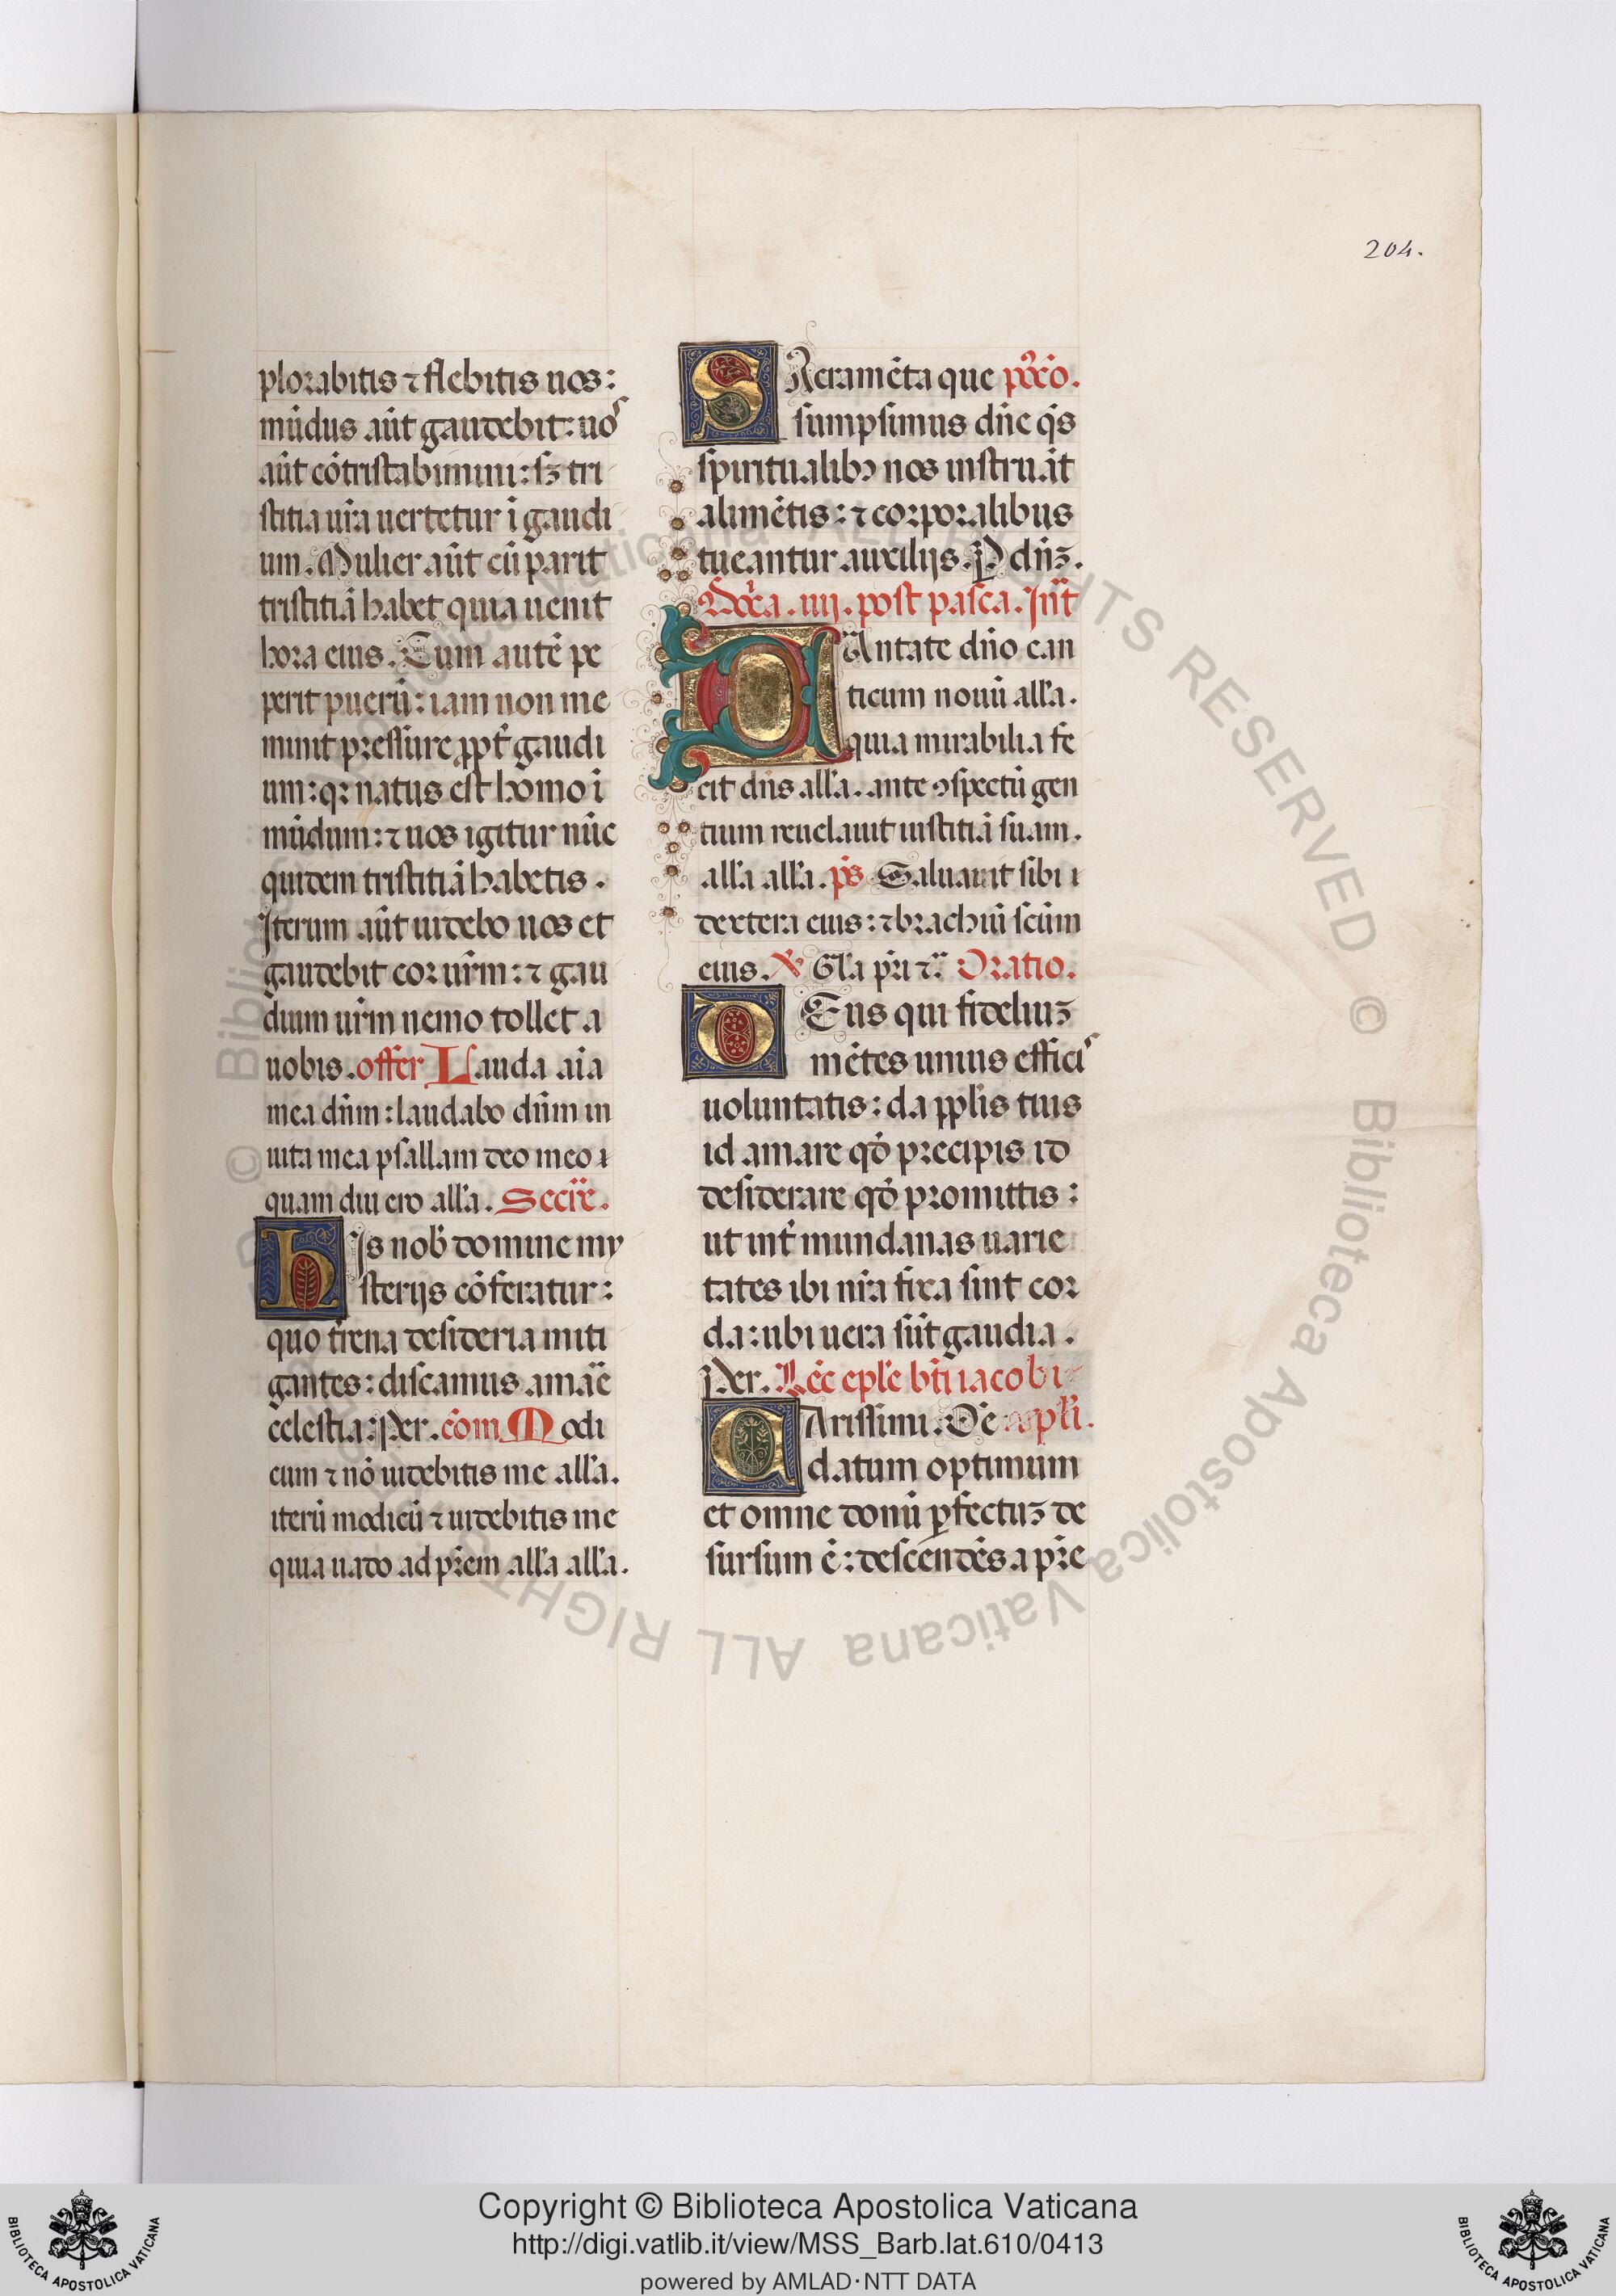 204.
plorabitis ⁊ flebitis uos:
mũdus aũt gaudebit: uos
aũt cõtristabimini: sꝫ tri
stitia ur̃a uertetur ĩ gaudi
um. Mulier aũt cũ parit
tristitiã habet quia uenit
hora eius. Cum autẽ pe
perit puerũ: iam non me
minit pressure ꝓpt̃ gaudi
um: qꝛ natus est homo ĩ
mũdum: ⁊ uos igitur nũc
quidem tristitiã habetis.
Iterum aũt uidebo uos et
gaudebit cor ur̃m: ⁊ gau
dium ur̃m nemo tollet a
uobis. offer Lauda aĩa
mea dñm: laudabo dñm in
uita mea psallam deo meo ı
quam diu ero all'a. Secrẽ.
his nob̃ domine my
sterijs cõferatur:
quo t̃rena desideria miti
gantes: discamus amãe
celestia: Per. cõm Modi
cum ⁊ nõ uidebitis me all'a.
iterũ modicũ ⁊ uidebitis me
quia uado ad pr̃em all'a all'a.
SAcramẽta que pꝰcõ.
sumpsimus dñe q̃s
spiritualibꝫ nos instruãt
alimẽtis: ⁊ corporalibus
tueantur auxilijs. P dñꝫ.
Dõca. iiij. post pasca. Int̃
CAntate dño can
ticum nouũ all'a.
quia mirabilia fe
cit dñs all'a. ante ꝯspectũ gen
tium reuelauit iustitiã suam.
all'a all'a. p̃s Saluauit sibi ı
dextera eius: ⁊ brachiũ scũm
eius. ℣ Gl'a pr̃i ⁊̃ Oratio.
DEus qui fideliuꝫ
mẽtes unius efficis
uoluntatis: da ppl'is tuis
id amare qđ precipis id
desiderare qđ promittis:
ut int̃ mundanas uarie
tates ibi nr̃a fixa sint cor
da: ubi uera sũt gaudia.
Per. Lẽc epl'e bt̃i iacobi
CArissimi. Oẽ apl'i.
datum optimum
et omne donũ ꝑfectuꝫ de
sursum ẽ: descendẽs a pr̃e
© Biblioteca Apostolica Vaticana ALL RIGHTS RESERVED © Biblioteca Apostolica Vaticana ALL RIGHTS RESERVED
Copyright © Biblioteca Apostolica Vaticana
http://digi.vatlib.it/view/MSS_Barb.lat.610/0413
powered by AMLAD·NTT DATA
BIBLIOTECA APOSTOLICA VATICANA
BIBLIOTECA APOSTOLICA VATICANA